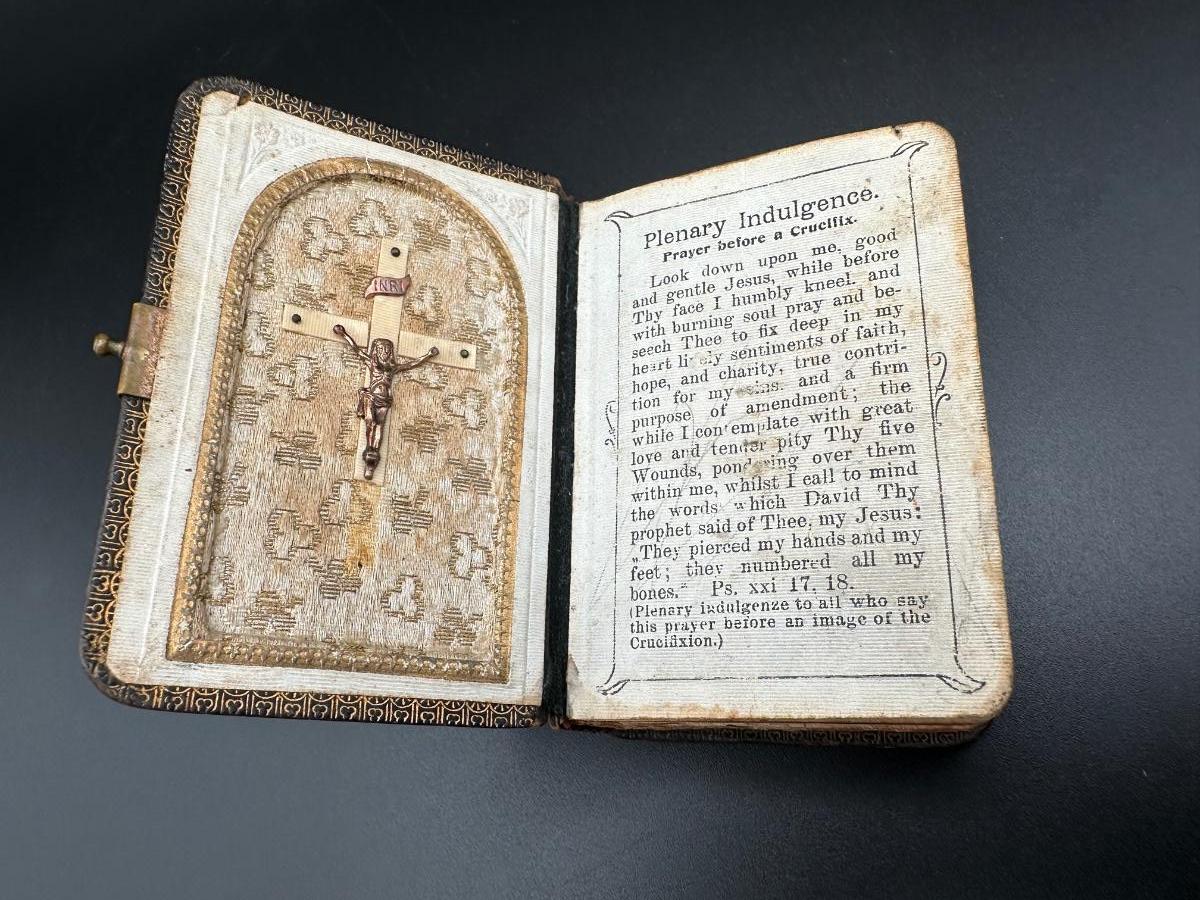 INRI
Plenary Indulgence.
Prayer before a Crucifix.
Look down upon me. good
and gentle Jesus, while before
Thy face I humbly kneel. and
with burning soul pray and be-
seech Thee to fix deep in my
heart lively sentiments of faith,
hope, and charity, true contri-
tion for my sins. and a firm
purpose of amendment; the
while I contemplate with great
love and tender pity Thy five
Wounds, pondering over them
within me, whilst I call to mind
the words which David Thy
prophet said of Thee, my Jesus:
„They pierced my hands and my
feet; they numbered all my
bones.“ Ps. xxi 17. 18.
(Plenary indulgenze to all who say
this prayer before an image of the
Crucifixion.)